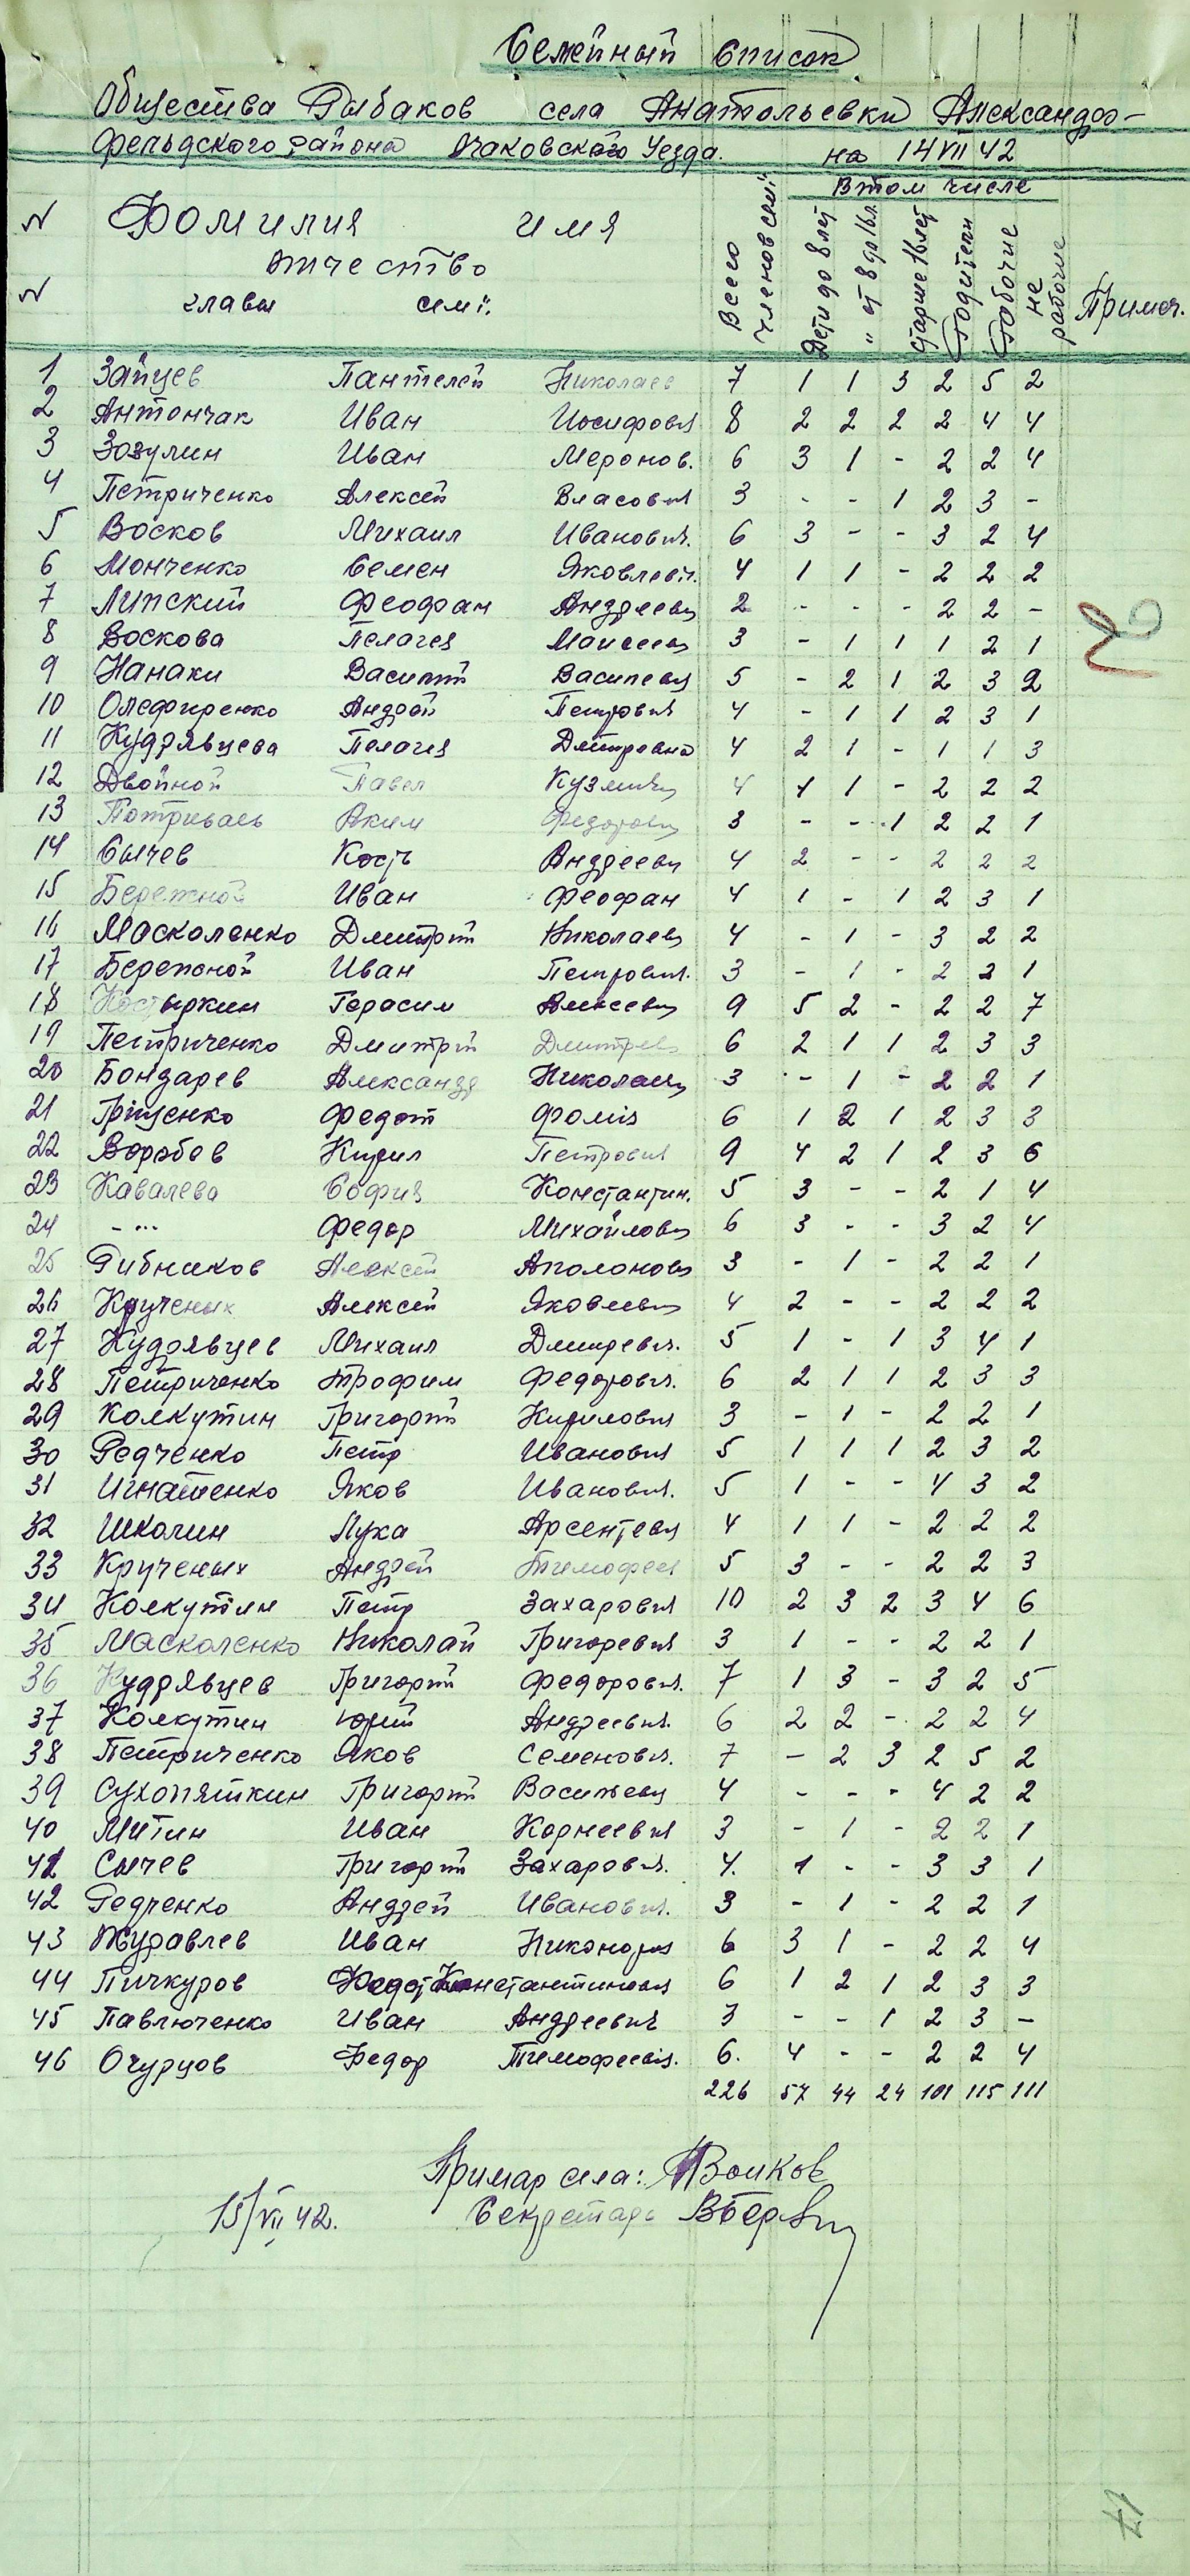 Семейный Список
Общества Рыбаков села Анатольевки Александр-
фельдского района Очаковского Уезда. на 14 VII 42
В том числе
N Фомилия имя
отчество
N главы семї:
Всего членов семї:
Дети до 8 лет
" от 8 до 16 л.
старше 16 лет
Родители
Рабочие
не рабочие
Примеч.
1 Зайцев Пантелей Николаев 7 1 1 3 2 5 2
2 Антончак Иван Иосифович 8 2 2 2 2 4 4
3 Зозулин Иван Меронов. 6 3 1 - 2 2 4
4 Петриченко Алексей Власович 3 - - 1 2 3 -
5 Восков Михаил Иванович. 6 3 - - 3 2 4
6 Монченко Семен Яковлевич. 4 1 1 - 2 2 2
7 Липский Феофан Андреевич 2 - - - 2 2 -
8 Воскова Пелагея 3 - 1 1 1 2 1
9 Нанаки Василий Василевич 5 - 2 1 2 3 2
10 Олефиренко Андрей Петрович 4 - 1 1 2 3 1
11 Кудрявцева Пелагея Дмитревна 4 2 1 - 1 1 3
12 Двойной Павел Кузмич 4 1 1 - 2 2 2
13 Аким Федорович 3 - - 1 2 2 1
14 Сычев Кость Андреевич 4 2 - - 2 2 2
15 Бережной Иван Феофан 4 1 - 1 2 3 1
16 Масколенко Дмитрий Николаевич 4 - 1 - 3 2 2
17 Бережной Иван Петрович. 3 - 1 - 2 2 1
18 Костыркин Герасим Алексеевич 9 5 2 - 2 2 7
19 Петриченко Дмитрий Дмитрев 6 2 1 1 2 3 3
20 Бондарев Александр Николаевич 3 - 1 - 2 2 1
21 Гріценко Федот Фоміч 6 1 2 1 2 3 3
22 Воробев Кирил Петрович 9 4 2 1 2 3 6
23 Кавалева София Константин. 5 3 - - 2 1 4
24 - ... Федор Михайлович 6 3 - - 3 2 4
25 Рибников Алексей Аполонович 3 - 1 - 2 2 1
26 Крученых Алексей Яковлевич 4 2 - - 2 2 2
27 Кудрявцев Михаил Дмитревич. 5 1 - 1 3 4 1
28 Петриченко Трофим Федорович. 6 2 1 1 2 3 3
29 Колкутин Григорий Кирилович 3 - 1 - 2 2 1
30 Редченко Петр Иванович 5 1 1 1 2 3 2
31 Игнатенко Яков Иванович. 5 1 - - 4 3 2
32 Школин Лука Арсентевич 4 1 1 - 2 2 2
33 Крученых Андрей Тимофеев 5 3 - - 2 2 3
34 Колкутин Петр Захарович 10 2 3 2 3 4 6
35 Масколенко Николай Григоревич 3 1 - - 2 2 1
36 Кудрявцев Григорий Федорович. 7 1 3 - 3 2 5
37 Колкутин Юрий Андреевич. 6 2 2 - 2 2 4
38 Петриченко Яков Семенович. 7 - 2 3 2 5 2
39 Сухопяткин Григорий Васильевич 4 - - - 4 2 2
40 Митин Иван Корнеевич 3 - 1 - 2 2 1
41 Сычев Григорий Захарович. 4. 1 - - 3 3 1
42 Редченко Андрей Иванович. 3 - 1 - 2 2 1
43 Журавлев Иван Никоноров 6 3 1 - 2 2 4
44 Пичкуров Федот Константинович 6 1 2 1 2 3 3
45 Павлюченко Иван Андреевич 3 - - 1 2 3 -
46 Очурцов Федор Тимофеевіч. 6. 4 - - 2 2 4
226 57 44 24 101 115 111
Примар села: Волков
15/VII 42. Секретарь